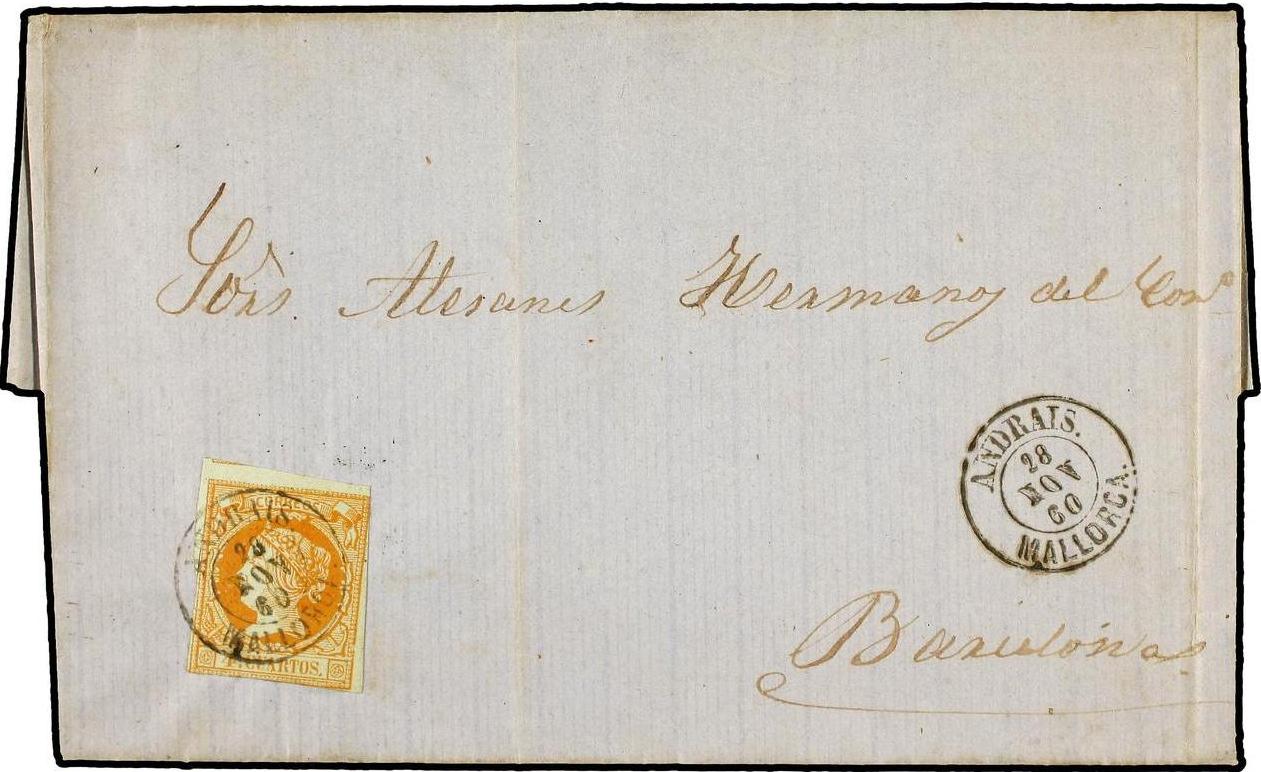 Sõrs Hermanos del Com.º
ANDRAIS.
28
NOV
60
MALLORCA.
CORREOS
ANDRAIS.
28
NOV
60
MALLORCA
4 CUARTOS.
Barcelona